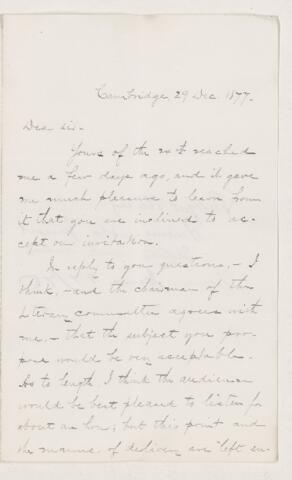 Cambridge, 29 Dec. 1877.
Dear sir -
Yours of the 20th reached
me a few days ago, and it gave
me much pleasure to learn from
it that you are inclined to ac-
cept our invitation.
In reply to your questions, - I
think, - and the chairman of the
Literary committee agrees with
me, - that the subject you pro-
pose would be very acceptable.
As to length, I think the audience
would be best pleased to listen for
about an hour; but this point and
the manner of delivery are left en-